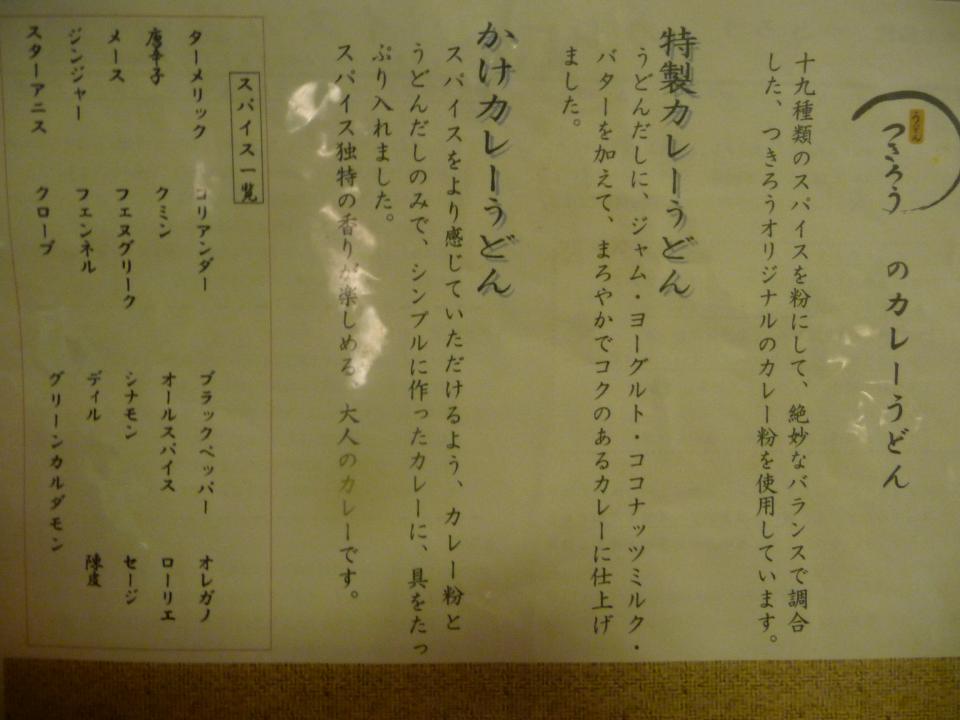 うどん
つきろう のカレーうどん
十九種類のスパイスを粉にして、絶妙なバランスで調合
した、つきろうオリジナルのカレー粉を使用しています。
特製カレーうどん
うどんだしに、ジャム・ヨーグルト・ココナッツミルク・
バターを加えて、まろやかでコクのあるカレーに仕上げ
ました。
かけカレーうどん
スパイスをより感じていただけるよう、カレー粉と
うどんだしのみで、シンプルに作ったカレーに、具をたっ
ぷり入れました。
スパイス独特の香りが楽しめる、大人のカレーです。
スパイス一覧
ターメリック コリアンダー ブラックペッパー オレガノ
唐辛子 クミン オールスパイス ローリエ
メース フェヌグリーク シナモン セージ
ジンジャー フェンネル ディル 陳皮
スターアニス クローブ グリーンカルダモン